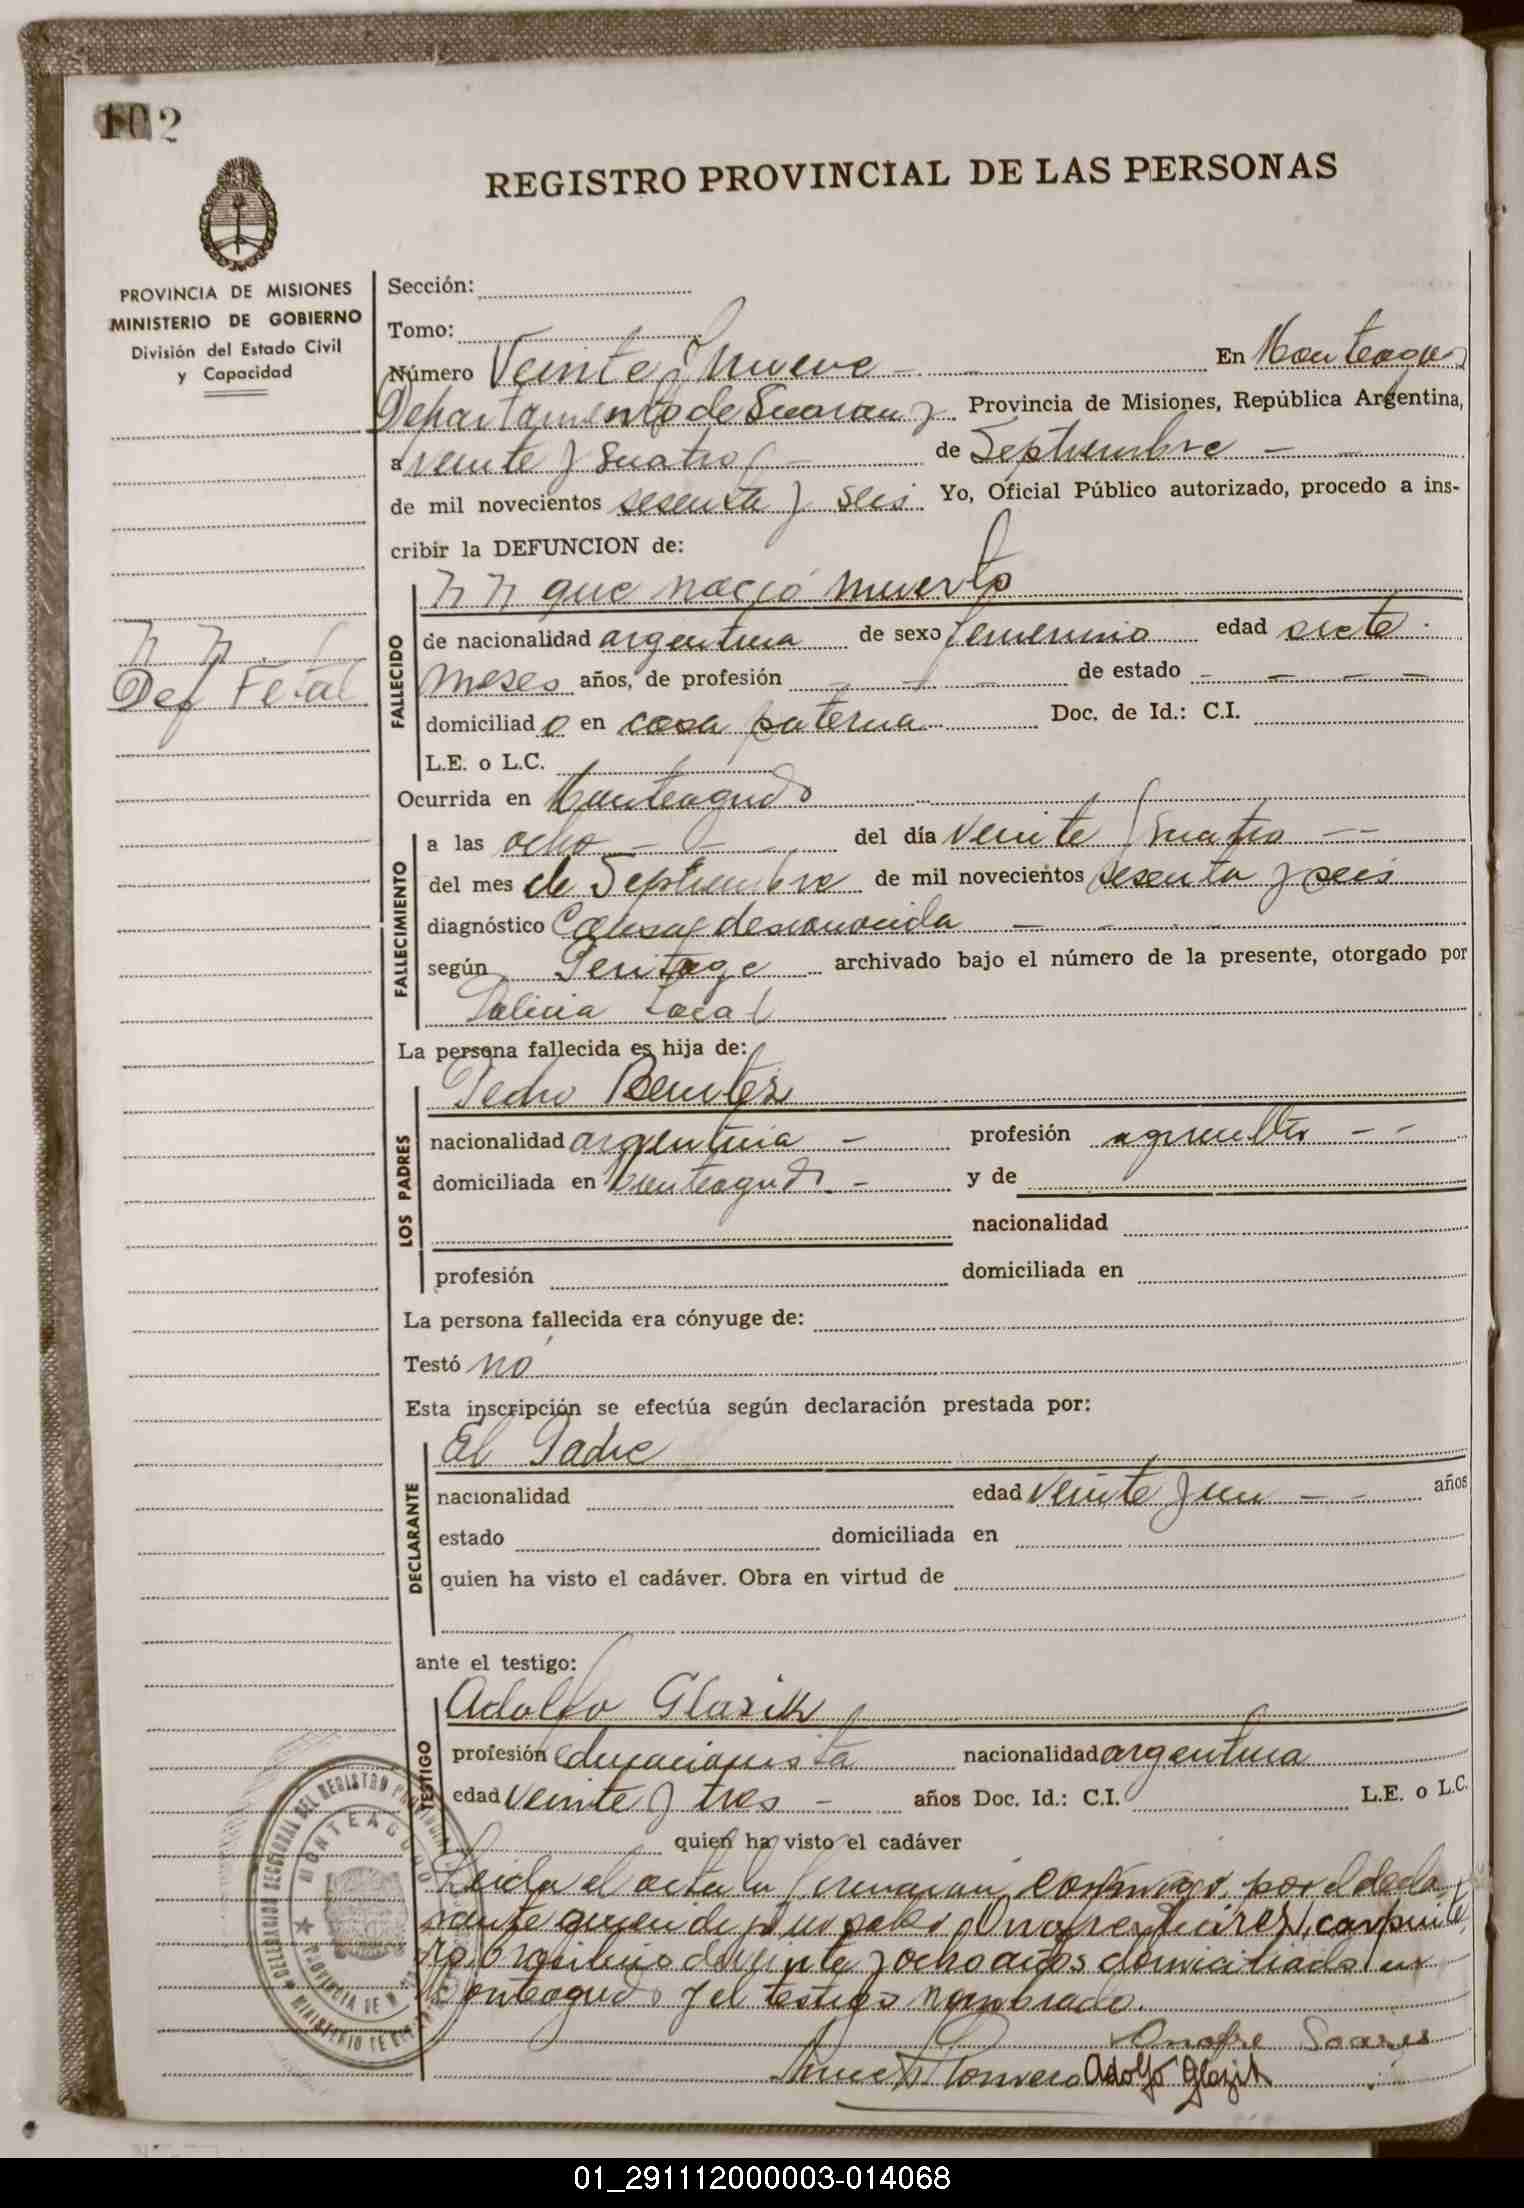 102
REGISTRO PROVINCIAL DE LAS PERSONAS
PROVINCIA DE MISIONES
MINISTERIO DE GOBIERNO
División del Estado Civil
y Capacidad
Sección:
Tomo:
Número Veinte y nueve - - En Monteagudo
Departamento de Guaraní Provincia de Misiones, República Argentina,
a veinte y cuatro - de Septiembre -
de mil novecientos sesenta y seis Yo, Oficial Público autorizado, procedo a ins-
cribir la DEFUNCION de:
N N
Def Fetal
FALLECIDO
N N que nació muerto
de nacionalidad argentina de sexo femenino edad siete
meses años, de profesión - - - de estado - - - -
domiciliado en casa paterna Doc. de Id.: C.I.
L.E. o L.C.
Ocurrida en Monteagudo
FALLECIMIENTO
a las ocho - - - del día veinte y cuatro - -
del mes de Septiembre de mil novecientos sesenta y seis
diagnóstico Causa desconocida - -
según Peritage archivado bajo el número de la presente, otorgado por
Policia Local
La persona fallecida es hija de:
LOS PADRES
Pedro Benitez
nacionalidad argentina - profesión agricultor - -
domiciliada en Monteagudo - y de
nacionalidad
profesión domiciliada en
La persona fallecida era cónyuge de:
Testó no
Esta inscripción se efectúa según declaración prestada por:
DECLARANTE
El Padre
nacionalidad edad veinte y un - - años
estado domiciliada en
quien ha visto el cadáver. Obra en virtud de
ante el testigo:
TESTIGO
Adolfo Glasik
profesión educacionista nacionalidad argentina
edad veinte y tres - años Doc. Id.: C.I. L.E. o L.C.
quien ha visto el cadáver
Leida el acta la firmaran conmigo, por el decla-
rante quien dijo no saber Onofre Suarez, carpinte
ro argentino de veinte y ocho años domiciliado en
Monteagudo y el testigo nombrado.
Onofre Soares
Romero Adolfo Glazik
MONTEAGUDO
01_291112000003-014068